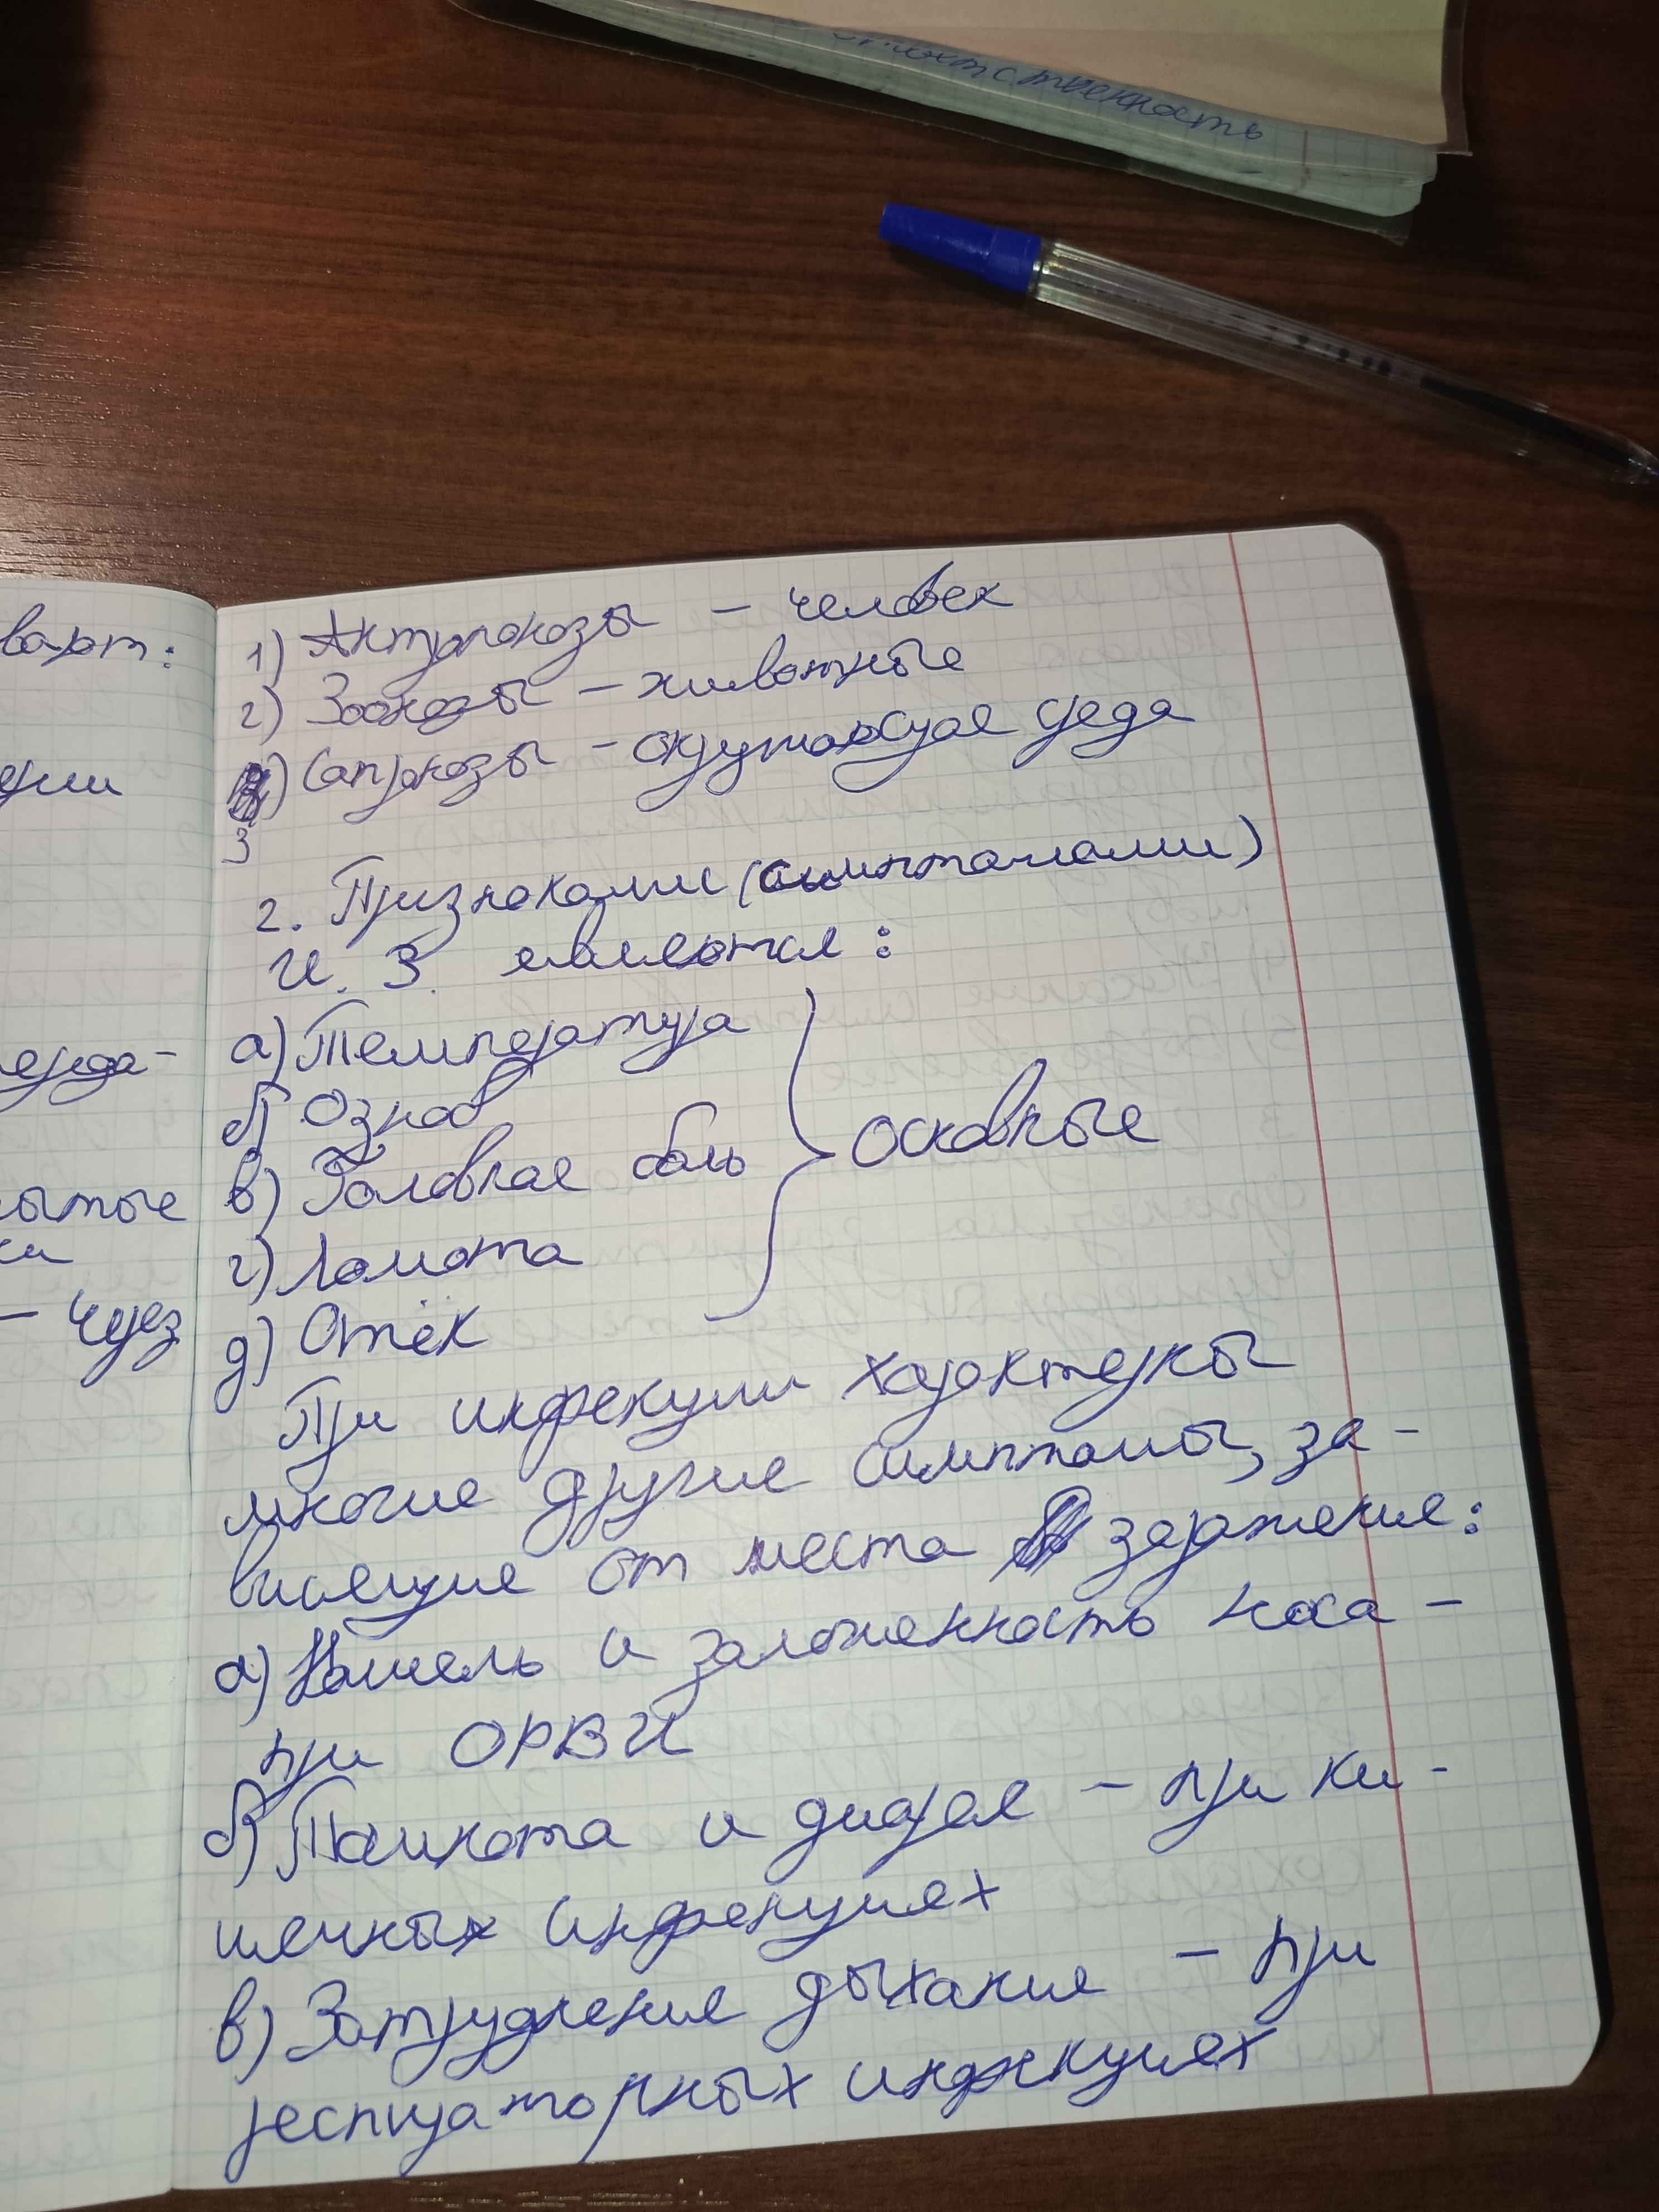 1) Антропонозы – человек
2) Зоонозы – животные
3) Сапронозы – окружающая среда
2. Признаками (симптомами)
И. З. являются:
а) Температура
б) Озноб
в) Головная боль
г) Ломота
д) Отёк
основные
При инфекции характерны
многие другие симптомы, за-
висящие от места заражения:
а) Кашель и заложенность носа –
при ОРВИ
б) Тошнота и диарея – при ки-
шечных инфекциях
в) Затруднения дыхания – при
респираторных инфекциях
– через